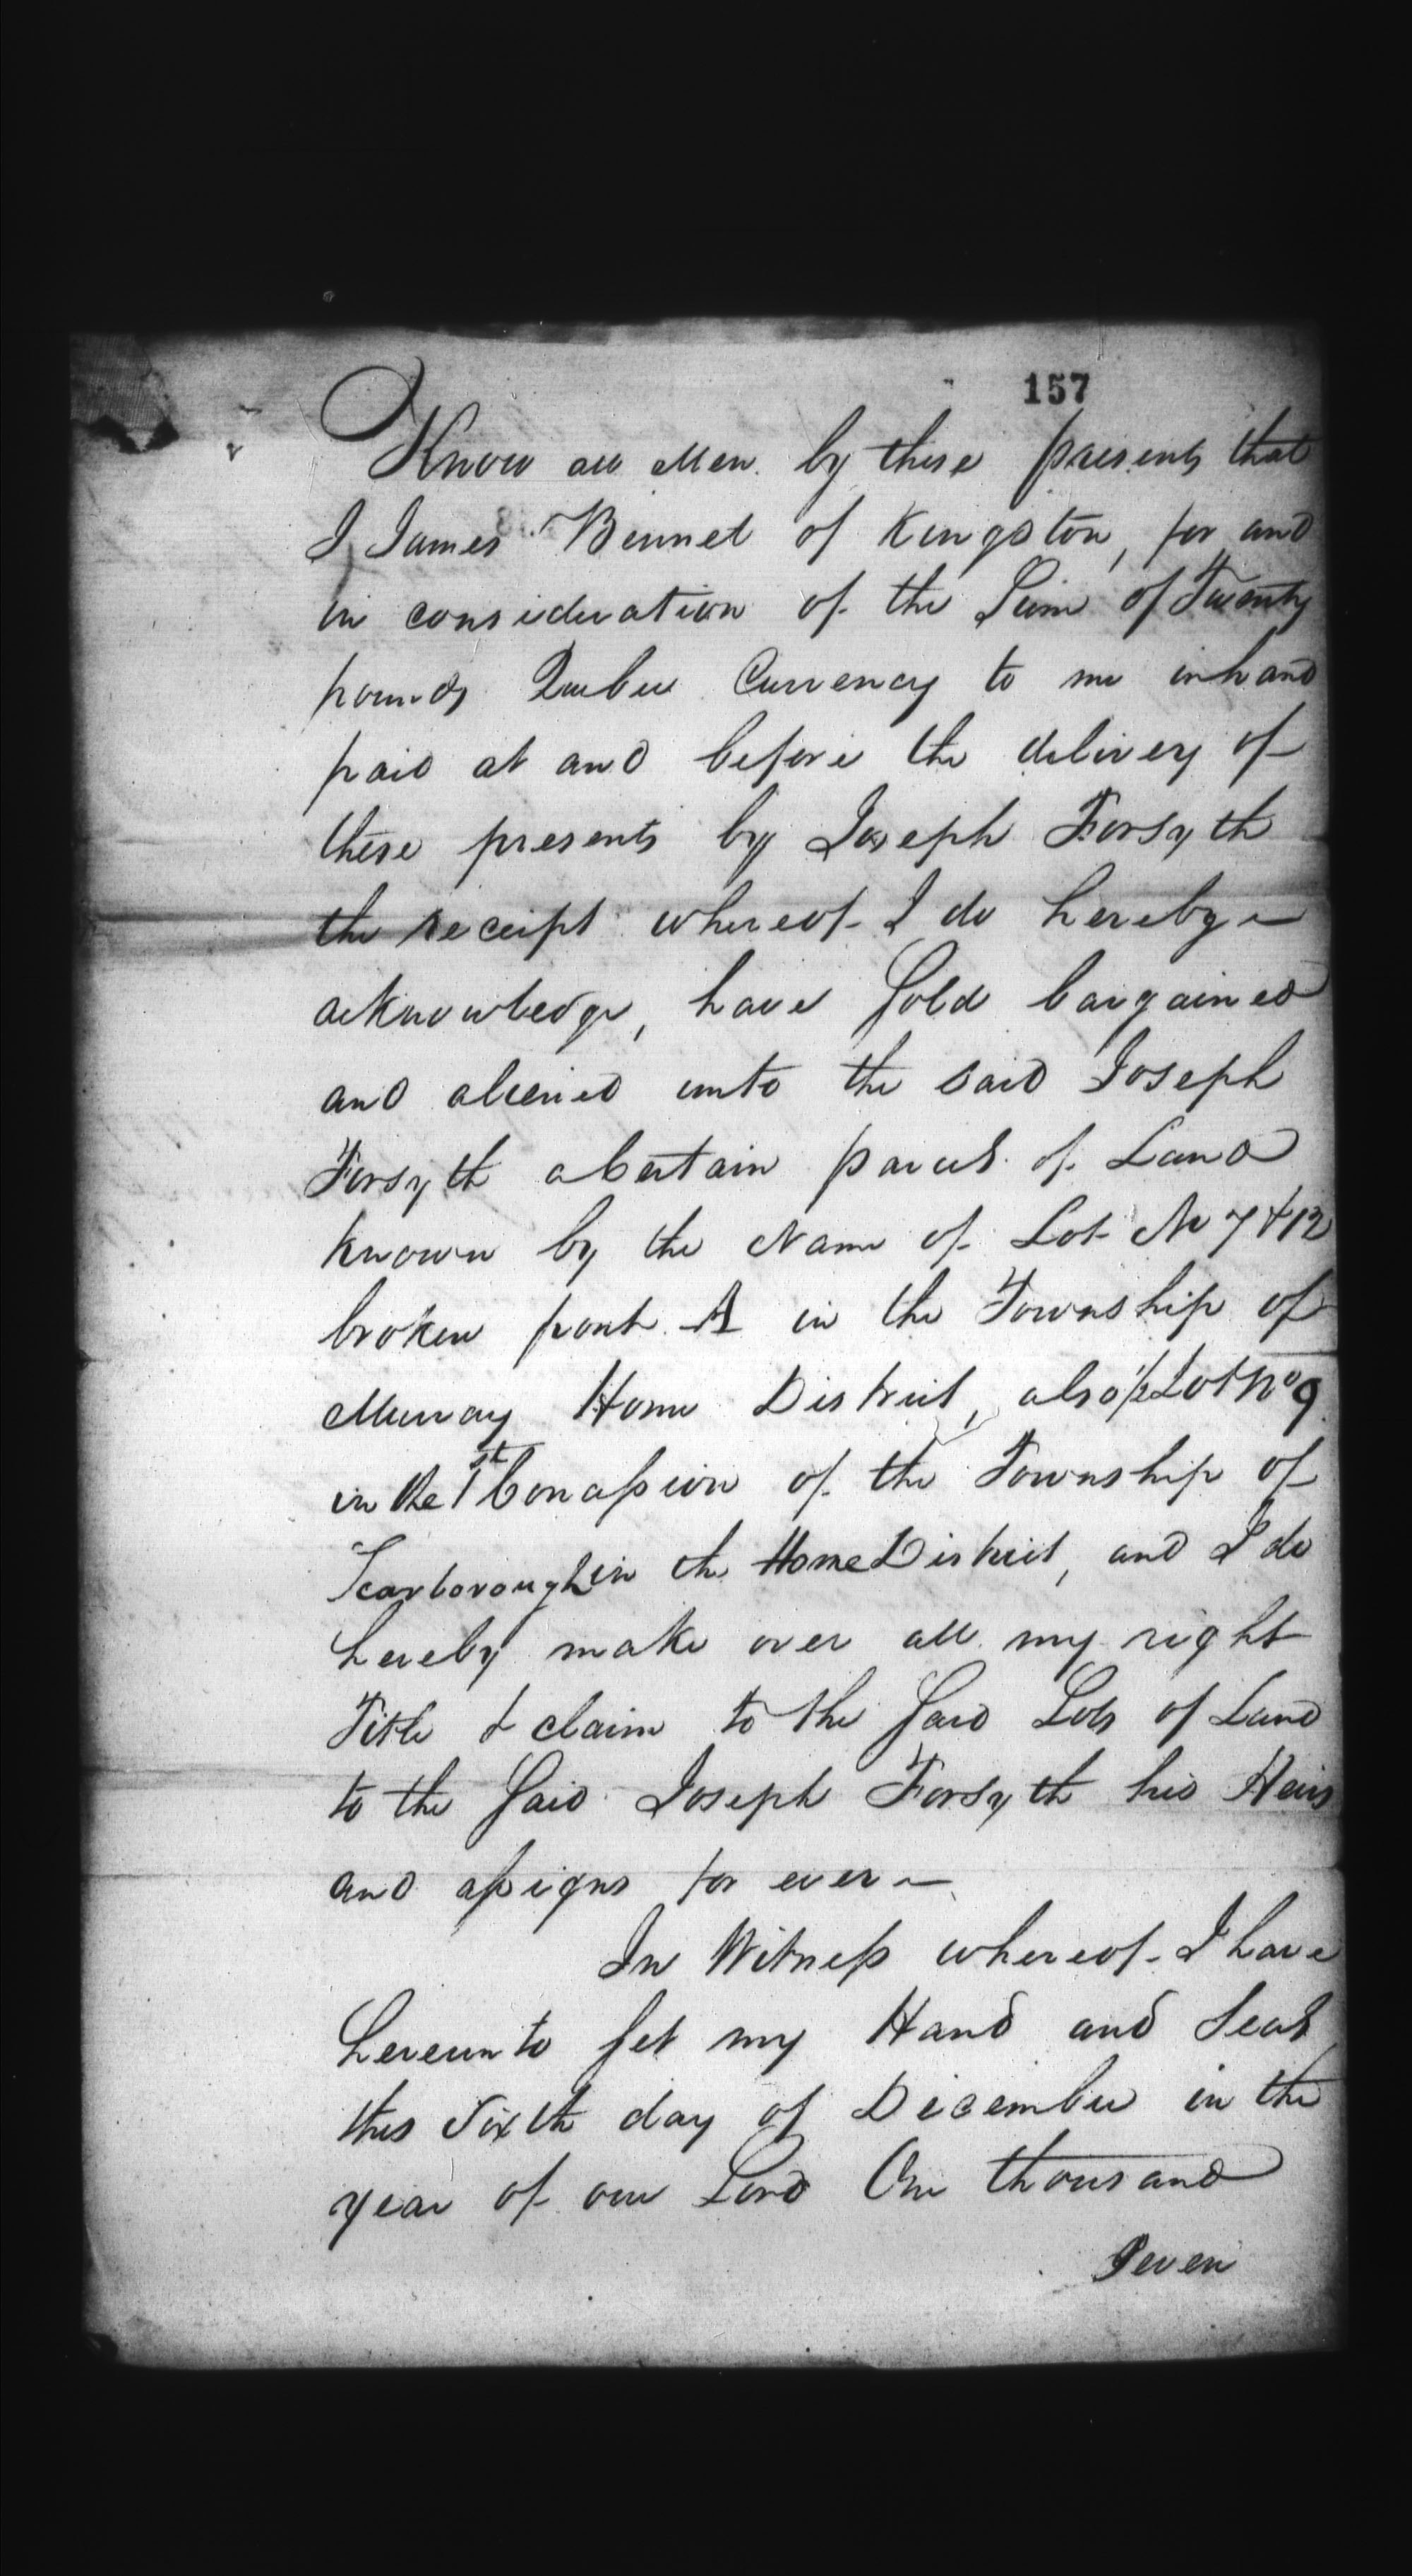 157
Know all Men by these presents that
I James Bennet of Kingston, for and
in consideration of the Sum of Twenty
pounds Quebec Currency to me in hand
paid at and before the delivery of
these presents by Joseph Forsyth
the receipt whereof I do hereby
acknowledge, have Sold bargained
and aliened unto the said Joseph
Forsyth a Certain parcel of Land
known by the Name of Lot No 7 & 12
broken front A in the Township of
Murray Home District, also 1/2 Lot No 9
in the 1st Concession of the Township of
Scarborough in the Home District, and I do
hereby make over all my right
Title & claim to the Said Lots of Land
to the Said Joseph Forsyth his Heirs
and assigns for ever
In Witness whereof I have
hereunto Set my Hand and Seal
this Sixth day of December in the
year of our Lord One thousand
Seven